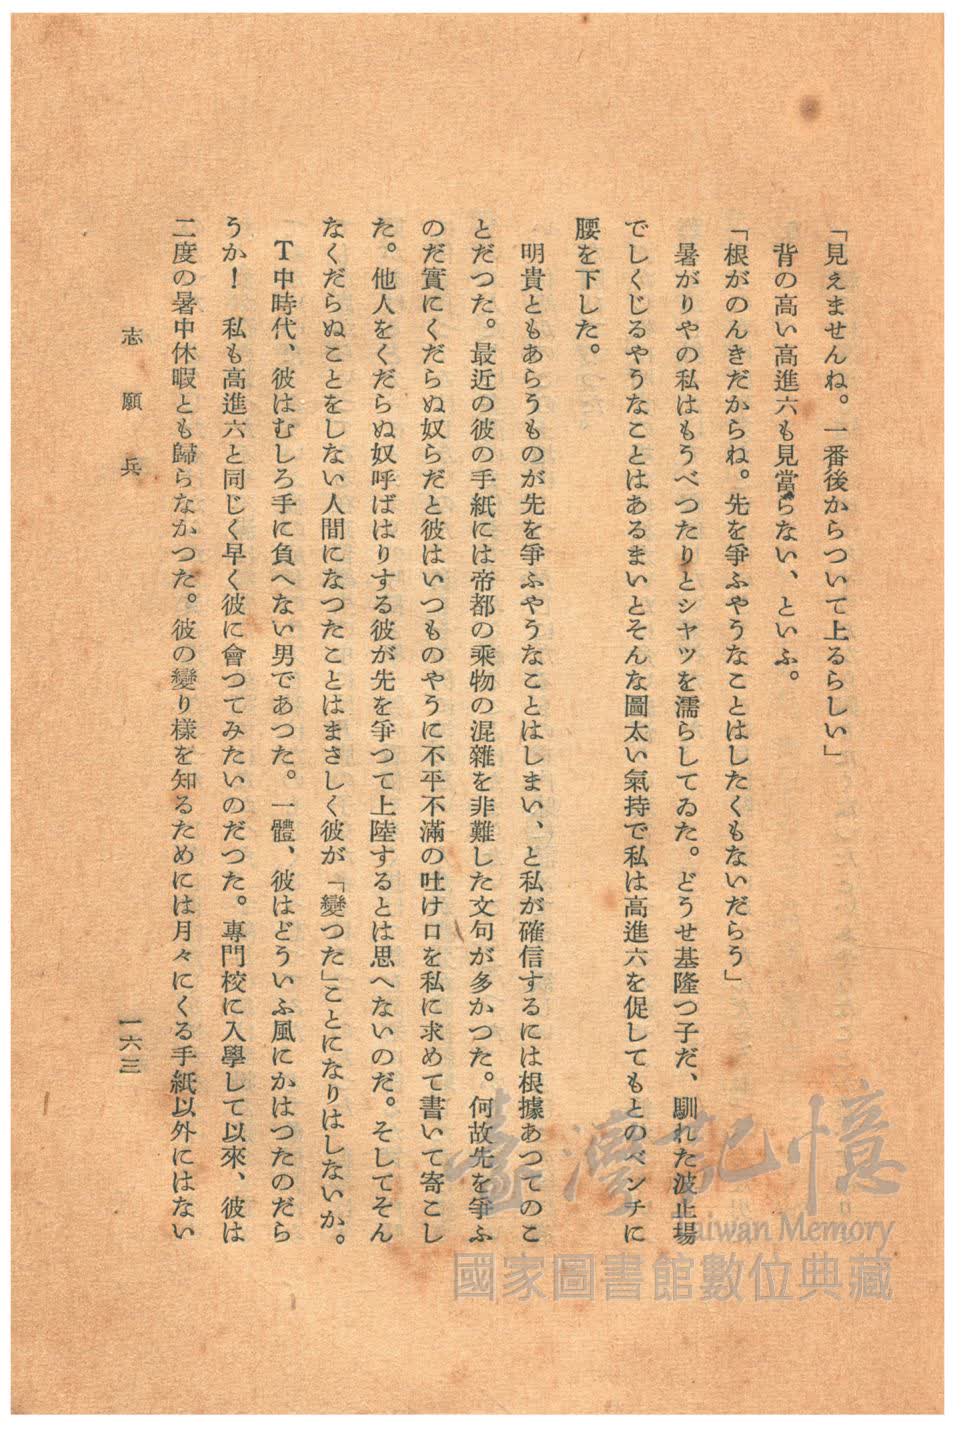 「見えませんね。一番後からついて上るらしい」
背の高い高進六も見當らない、といふ。
「根がのんきだからね。先を爭ふやうなことはしたくもないだらう」
暑がりやの私はもうべつたりとシャツを濡らしてゐた。どうせ基隆つ子だ、馴れた波止場
でしくじるやうなことはあるまいとそんな圖太い氣持で私は高進六を促してもとのベンチに
腰を下した。
明貴ともあらうものが先を爭ふやうなことはしまい、と私が確信するには根據あつてのこ
とだつた。最近の彼の手紙には帝都の乘物の混雜を非難した文句が多かつた。何故先を爭ふ
のだ實にくだらぬ奴らだと彼はいつものやうに不平不滿の吐け口を私に求めて書いて寄こし
た。他人をくだらぬ奴呼ばはりする彼が先を爭つて上陸するとは思へないのだ。そしてそん
なくだらぬことをしない人間になつたことはまさしく彼が「變つた」ことになりはしないか。
T中時代、彼はむしろ手に負へない男であつた。一體、彼はどういふ風にかはつたのだら
うか！　私も高進六と同じく早く彼に會つてみたいのだつた。專門校に入學して以來、彼は
二度の暑中休暇とも歸らなかつた。彼の變り樣を知るためには月々にくる手紙以外にはない
志願兵
一六三
臺灣記憶
Taiwan Memory
國家圖書館數位典藏